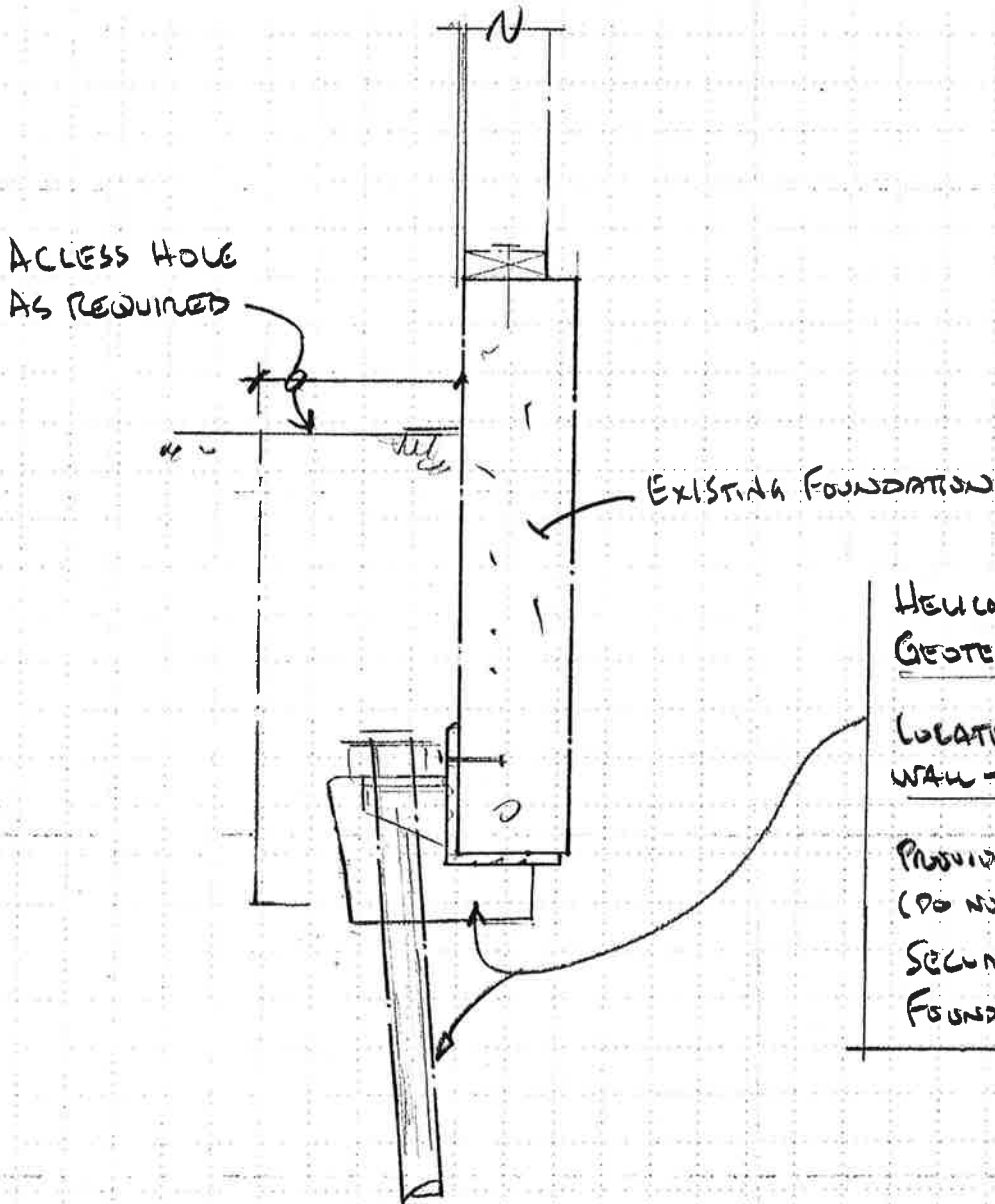 ACCESS HOLE
AS REQUIRED
EXISTING FOUNDATION
GEOTE
LOCATI
WALL -
PROVID
(DO NO
FOUND